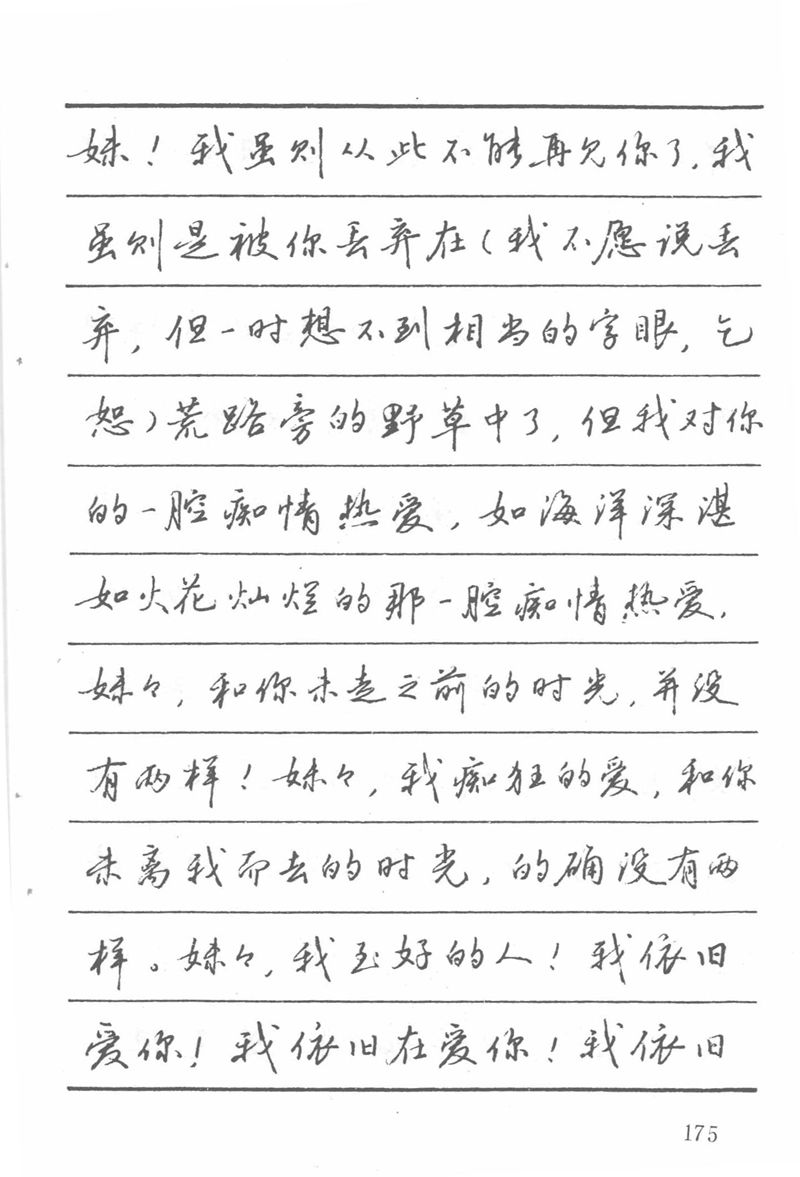 妹！我虽则从此不能再见你了，我
虽则是被你丢弃在（我不愿说丢
弃，但一时想不到相当的字眼，乞
恕）荒路旁的野草中了，但我对你
的一腔痴情热爱，如海洋深湛
如火花灿烂的那一腔痴情热爱，
妹々，和你未走之前的时光，并没
有两样！妹々，我痴狂的爱，和你
未离我而去的时光，的确没有两
样。妹々，我至好的人！我依旧
爱你！我依旧在爱你！我依旧
175